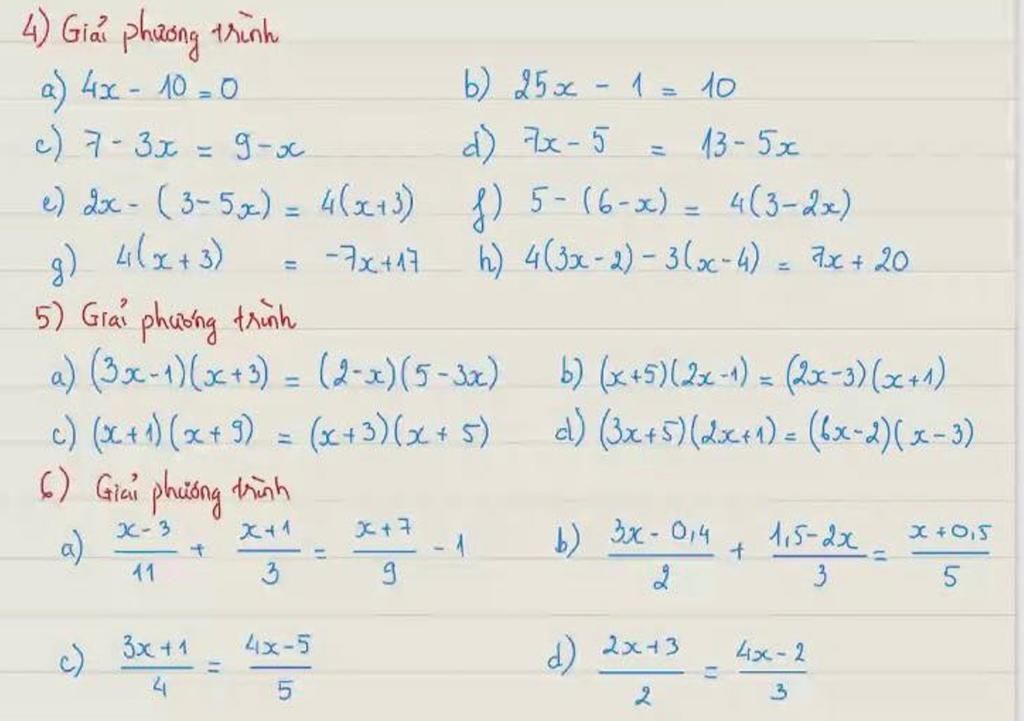 4) Giải phương trình
a) 4x - 10 = 0 b) 25x - 1 = 10
c) 7 - 3x = 9 - x d) 7x - 5 = 13 - 5x
e) 2x - (3 - 5x) = 4(x+3) f) 5 - (6 - x) = 4(3 - 2x)
g) 4(x + 3) = -7x + 17 h) 4(3x - 2) - 3(x - 4) = 7x + 20
5) Giải phương trình
a) (3x - 1)(x + 3) = (2 - x)(5 - 3x) b) (x+5)(2x - 1) = (2x - 3)(x + 1)
c) (x+1)(x + 9) = (x + 3)(x + 5) d) (3x + 5)(2x + 1) = (6x - 2)(x - 3)
6) Giải phương trình
a) (x - 3)/11 + (x + 1)/3 = (x + 7)/9 - 1 b) (3x - 0,4)/2 + (1,5 - 2x)/3 = (x + 0,5)/5
c) (3x + 1)/4 = (4x - 5)/5 d) (2x + 3)/2 = (4x - 2)/3